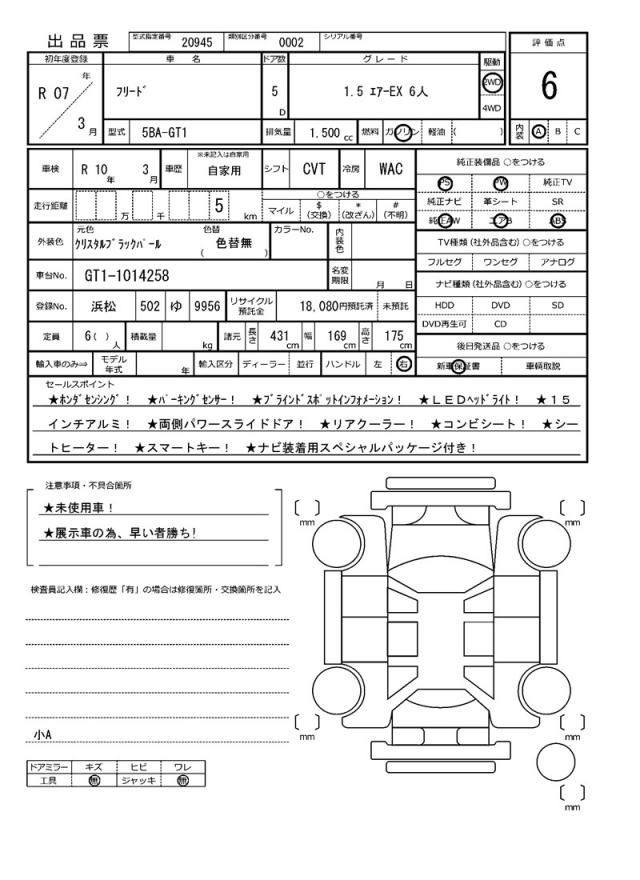 出品票 型式指定番号 20945 類別区分番号 0002 シリアル番号
評価点
初年度登録 車名 ドア数 グレード 駆動
R 07 年 3 月 フリード 5 D 1.5 エアーEX 6人 2WD 4WD 6
型式 5BA-GT1 排気量 1.500 cc 燃料 ガソリン 軽油 ( ) 内装 A B C
車検 R 10 年 3 月 車歴 ※未記入は自家用 自家用 シフト CVT 冷房 WAC
走行距離 万 千 5 km
○をつける
マイル $ (交換) * (改ざん) # (不明)
外装色 元色 クリスタルブラックパール 色替 ( 色替無 ) カラーNo. 内装色
車台No. GT1-1014258 名変期限 月 日
登録No. 浜松 502 ゆ 9956 リサイクル預託金 18,080円預託済 未預託
定員 6( ) 人 積載量 kg 諸元 長さ 431 cm 幅 169 cm 高さ 175 cm
輸入車のみ⇒ モデル年式 年 輸入区分 ディーラー 並行 ハンドル 左 右
純正装備品 ○をつける
PS PW 純正TV
純正ナビ 革シート SR
純正AW エアB ABS
TV種類 (社外品含む) ○をつける
フルセグ ワンセグ アナログ
ナビ種類 (社外品含む) ○をつける
HDD DVD SD
DVD再生可 CD
後日発送品 ○をつける
新車保証書 車輌取説
セールスポイント
★ホンダセンシング! ★パーキングセンサー! ★ブラインドスポットインフォメーション! ★LEDヘッドライト! ★15
インチアルミ! ★両側パワースライドドア! ★リアクーラー! ★コンビシート! ★シー
トヒーター! ★スマートキー! ★ナビ装着用スペシャルパッケージ付き!
注意事項・不具合箇所
★未使用車!
★展示車の為、早い者勝ち!
検査員記入欄:修復歴「有」の場合は修復箇所・交換箇所を記入
小A
ドアミラー キズ ヒビ ワレ
工具 無 ジャッキ 無
[ ] mm
[ ] mm
[ ] mm
[ ] mm
[ ] mm